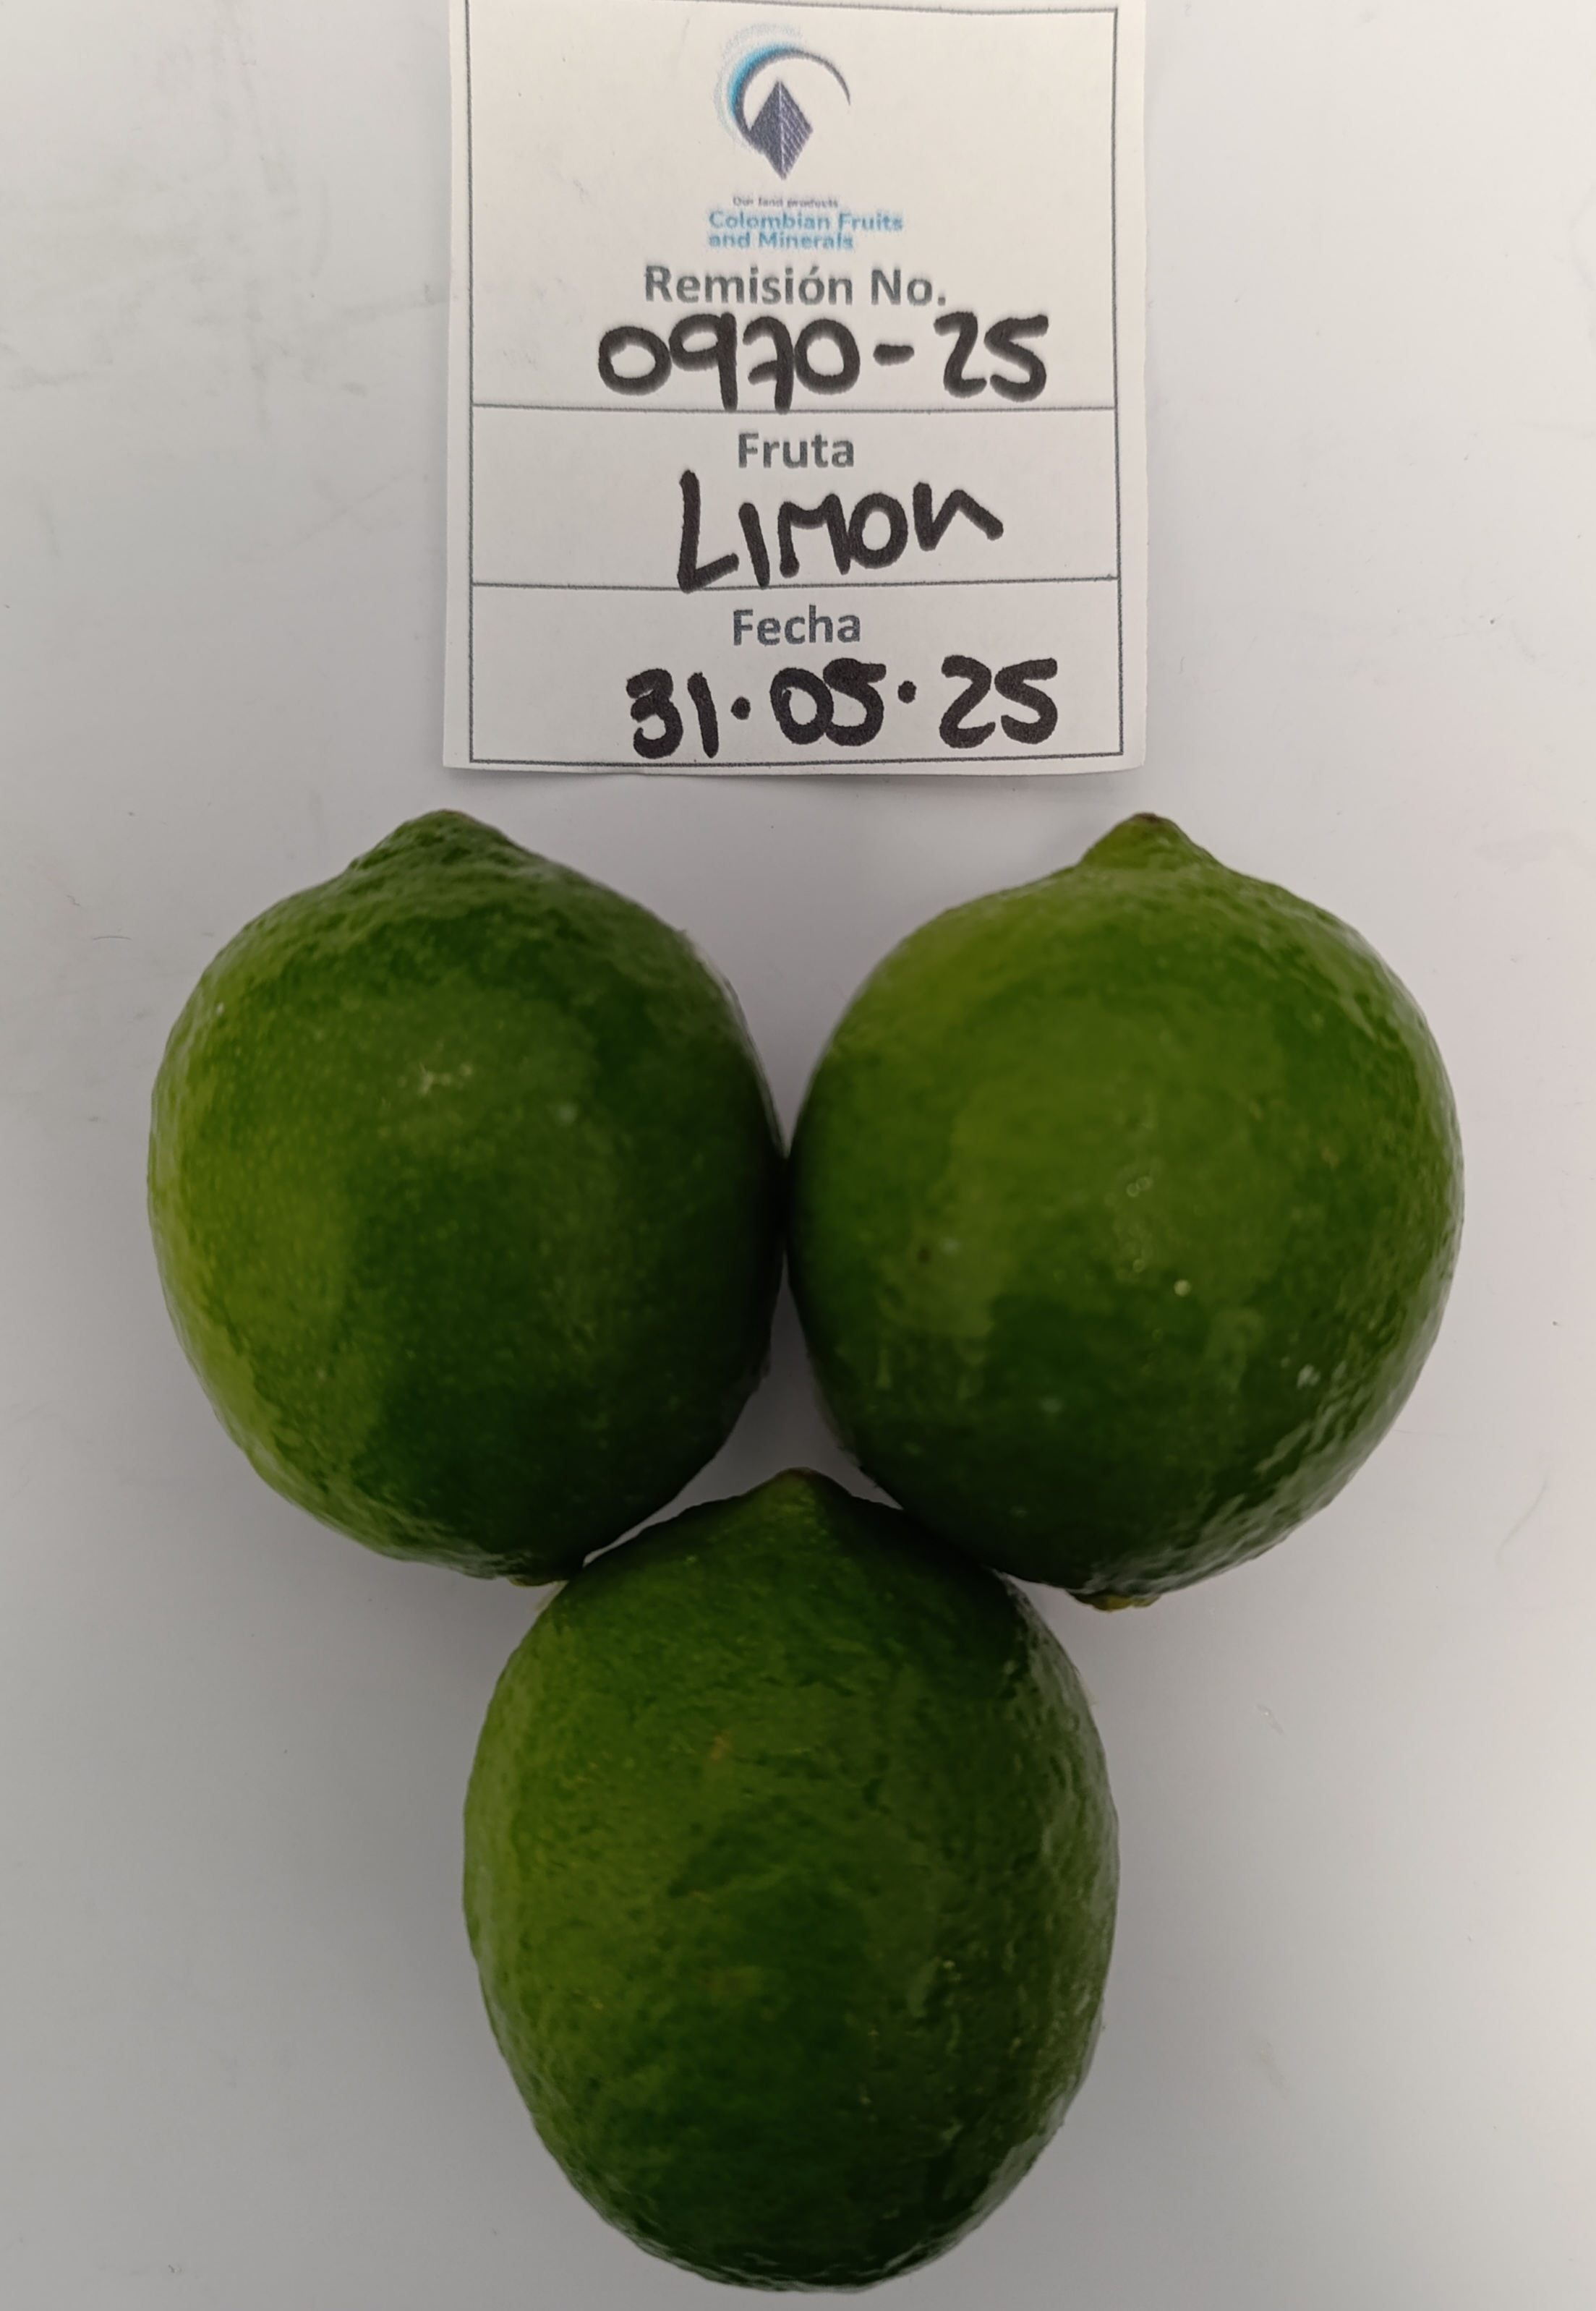 Our land products
Colombian Fruits
and Minerals
Remisión No.
0970-25
Fruta
LIMON
Fecha
31.05.25